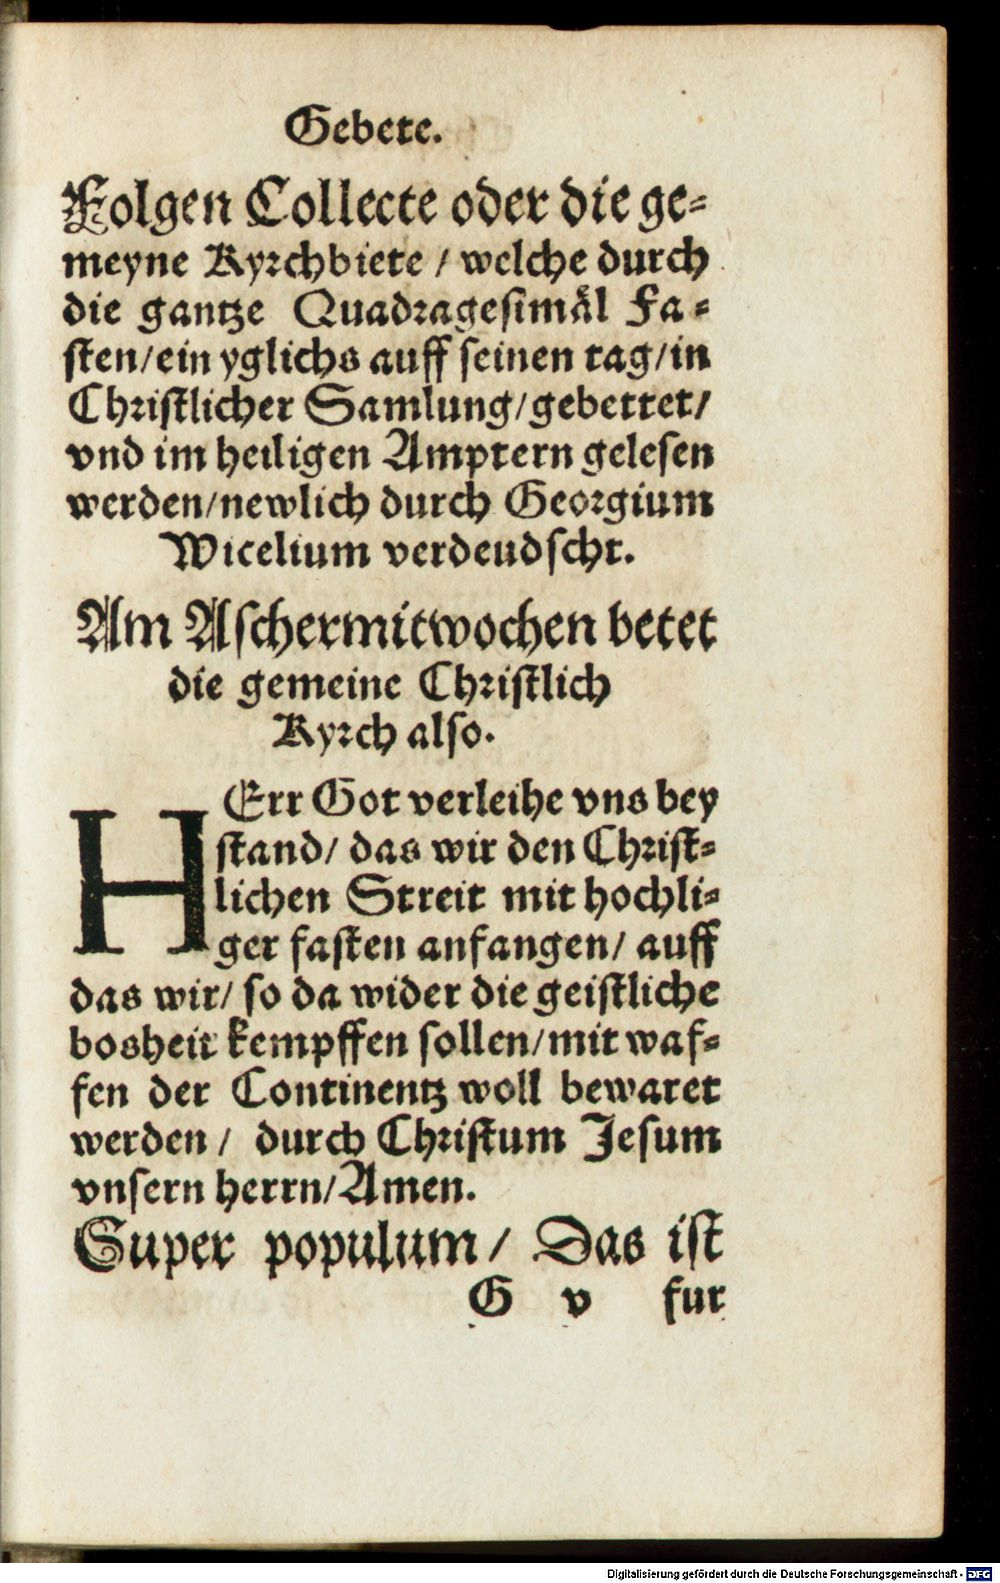 Gebete.
Folgen Collecte oder die ge-
meyne Kyrchbiete / welche durch
die gantze Quadragesimål Fa-
sten/ein yglichs auff seinen tag/in
Christlicher Samlung/gebettet/
vnd im heiligen Amptern gelesen
werden/newlich durch Georgium
Wicelium verdeudscht.
Am Aschermitwochen betet
die gemeine Christlich
Kyrch also.
HErr Got verleihe vns bey
stand/ das wir den Christ-
lichen Streit mit hochli-
ger fasten anfangen/ auff
das wir/ so da wider die geistliche
bosheit kempffen sollen/mit waf-
fen der Continentz woll bewaret
werden / durch Christum Jesum
vnsern herrn/Amen.
Super populum / Das ist
G v fur
Digitalisierung gefördert durch die Deutsche Forschungsgemeinschaft - DFG